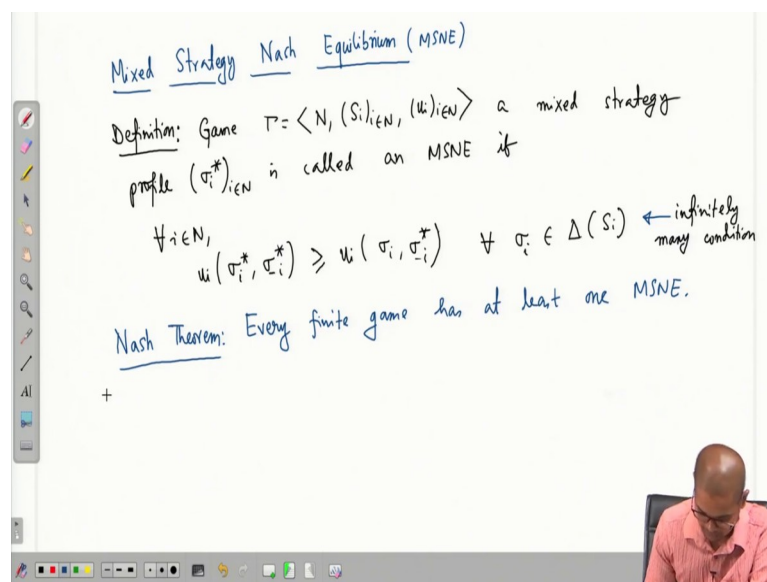 Mixed Strategy Nash Equilibrium (MSNE)
Definition: Game Γ = < N, (Si)i∈N, (ui)i∈N > a mixed strategy
profile (σi*)i∈N is called an MSNE if
∀ i ∈ N,
ui (σi*, σ-i*) ≥ ui (σi, σ-i*) ∀ σi ∈ Δ(Si) ← infinitely
many condition
Nash Theorem: Every finite game has at least one MSNE.
A